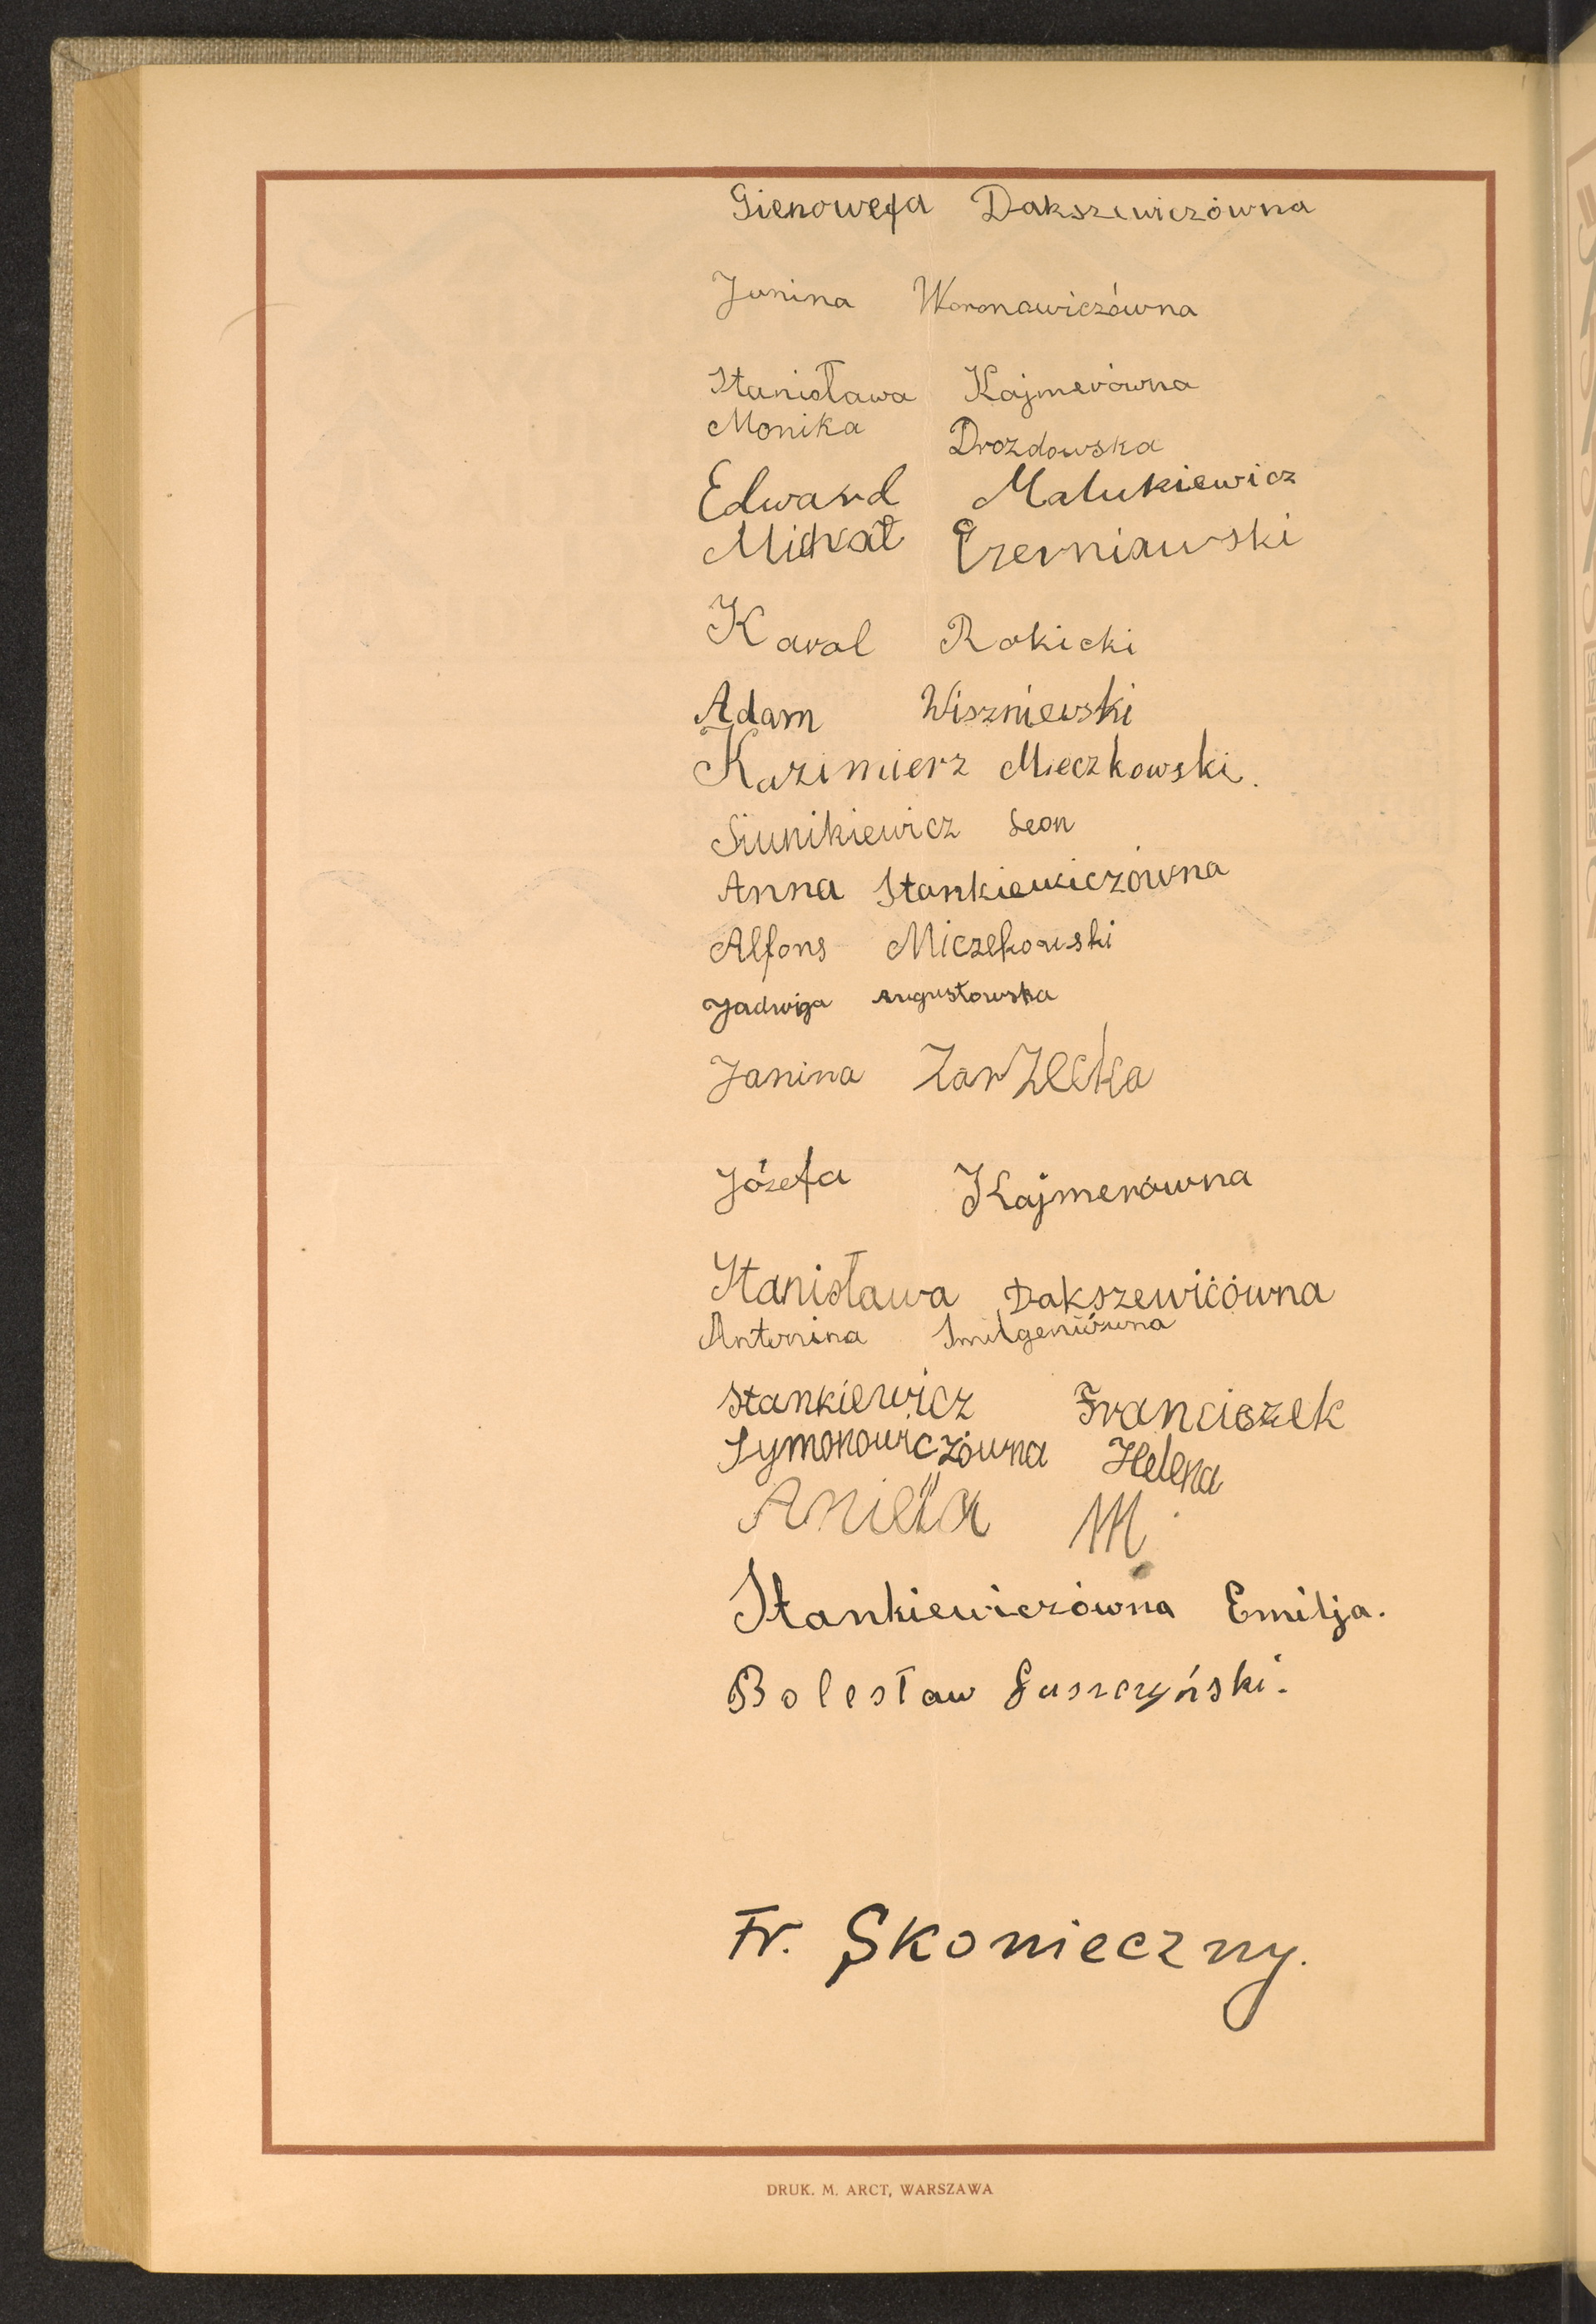 Gienowefa Dakszewiczówna
Janina Woronowiczówna
Stanisława Kajmerówna
Monika Drozdowska
Edward Malukiewicz
Michał Czerniawski
Karol Rokicki
Adam Wiszniewski
Kazimierz Mieczkowski.
Siunikiewicz Leon
Anna Stankiewiczówna
Alfons Miczekowski
Jadwiga Augustowska
Janina Zarzecka
Józefa Kajmerówna
Stanisława Dakszewićówna
Antonina
Stankiewicz Franciszek
Symonowiczówna Helena
Aniela M.
Stankiewiczówna Emilja.
Bolesław Luszczyński.
Fr. Skonieczny.
DRUK. M. ARCT, WARSZAWA